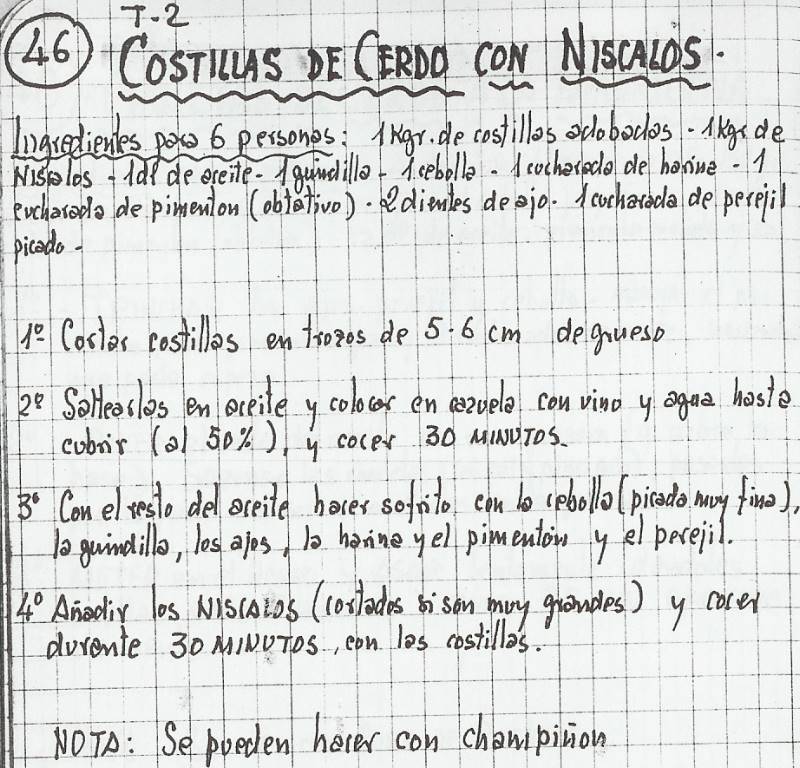 T-2
46 COSTILLAS DE CERDO CON NISCALOS.
Ingredientes para 6 personas: 1Kgr. de costillas adobadas - 1Kgr de
Niscalos - 1dl de aceite - 1 guindilla - 1 cebolla - 1 cucharada de harina - 1
cucharada de pimenton (obtativo) - 2 dientes de ajo - 1 cucharada de perejil
picado -
1º Cortar costillas en trozos de 5-6 cm de grueso
2º Saltearlas en aceite y colocar en cazuela con vino y agua hasta
cubrir (al 50%), y cocer 30 MINUTOS.
3º Con el resto del aceite hacer sofrito con la cebolla (picada muy fina),
la guindilla, los ajos, la harina y el pimentón y el perejil.
4º Añadir los NISCALOS (cortados si son muy grandes) y cocer
durante 30 MINUTOS, con las costillas.
NOTA: Se pueden hacer con champiñon